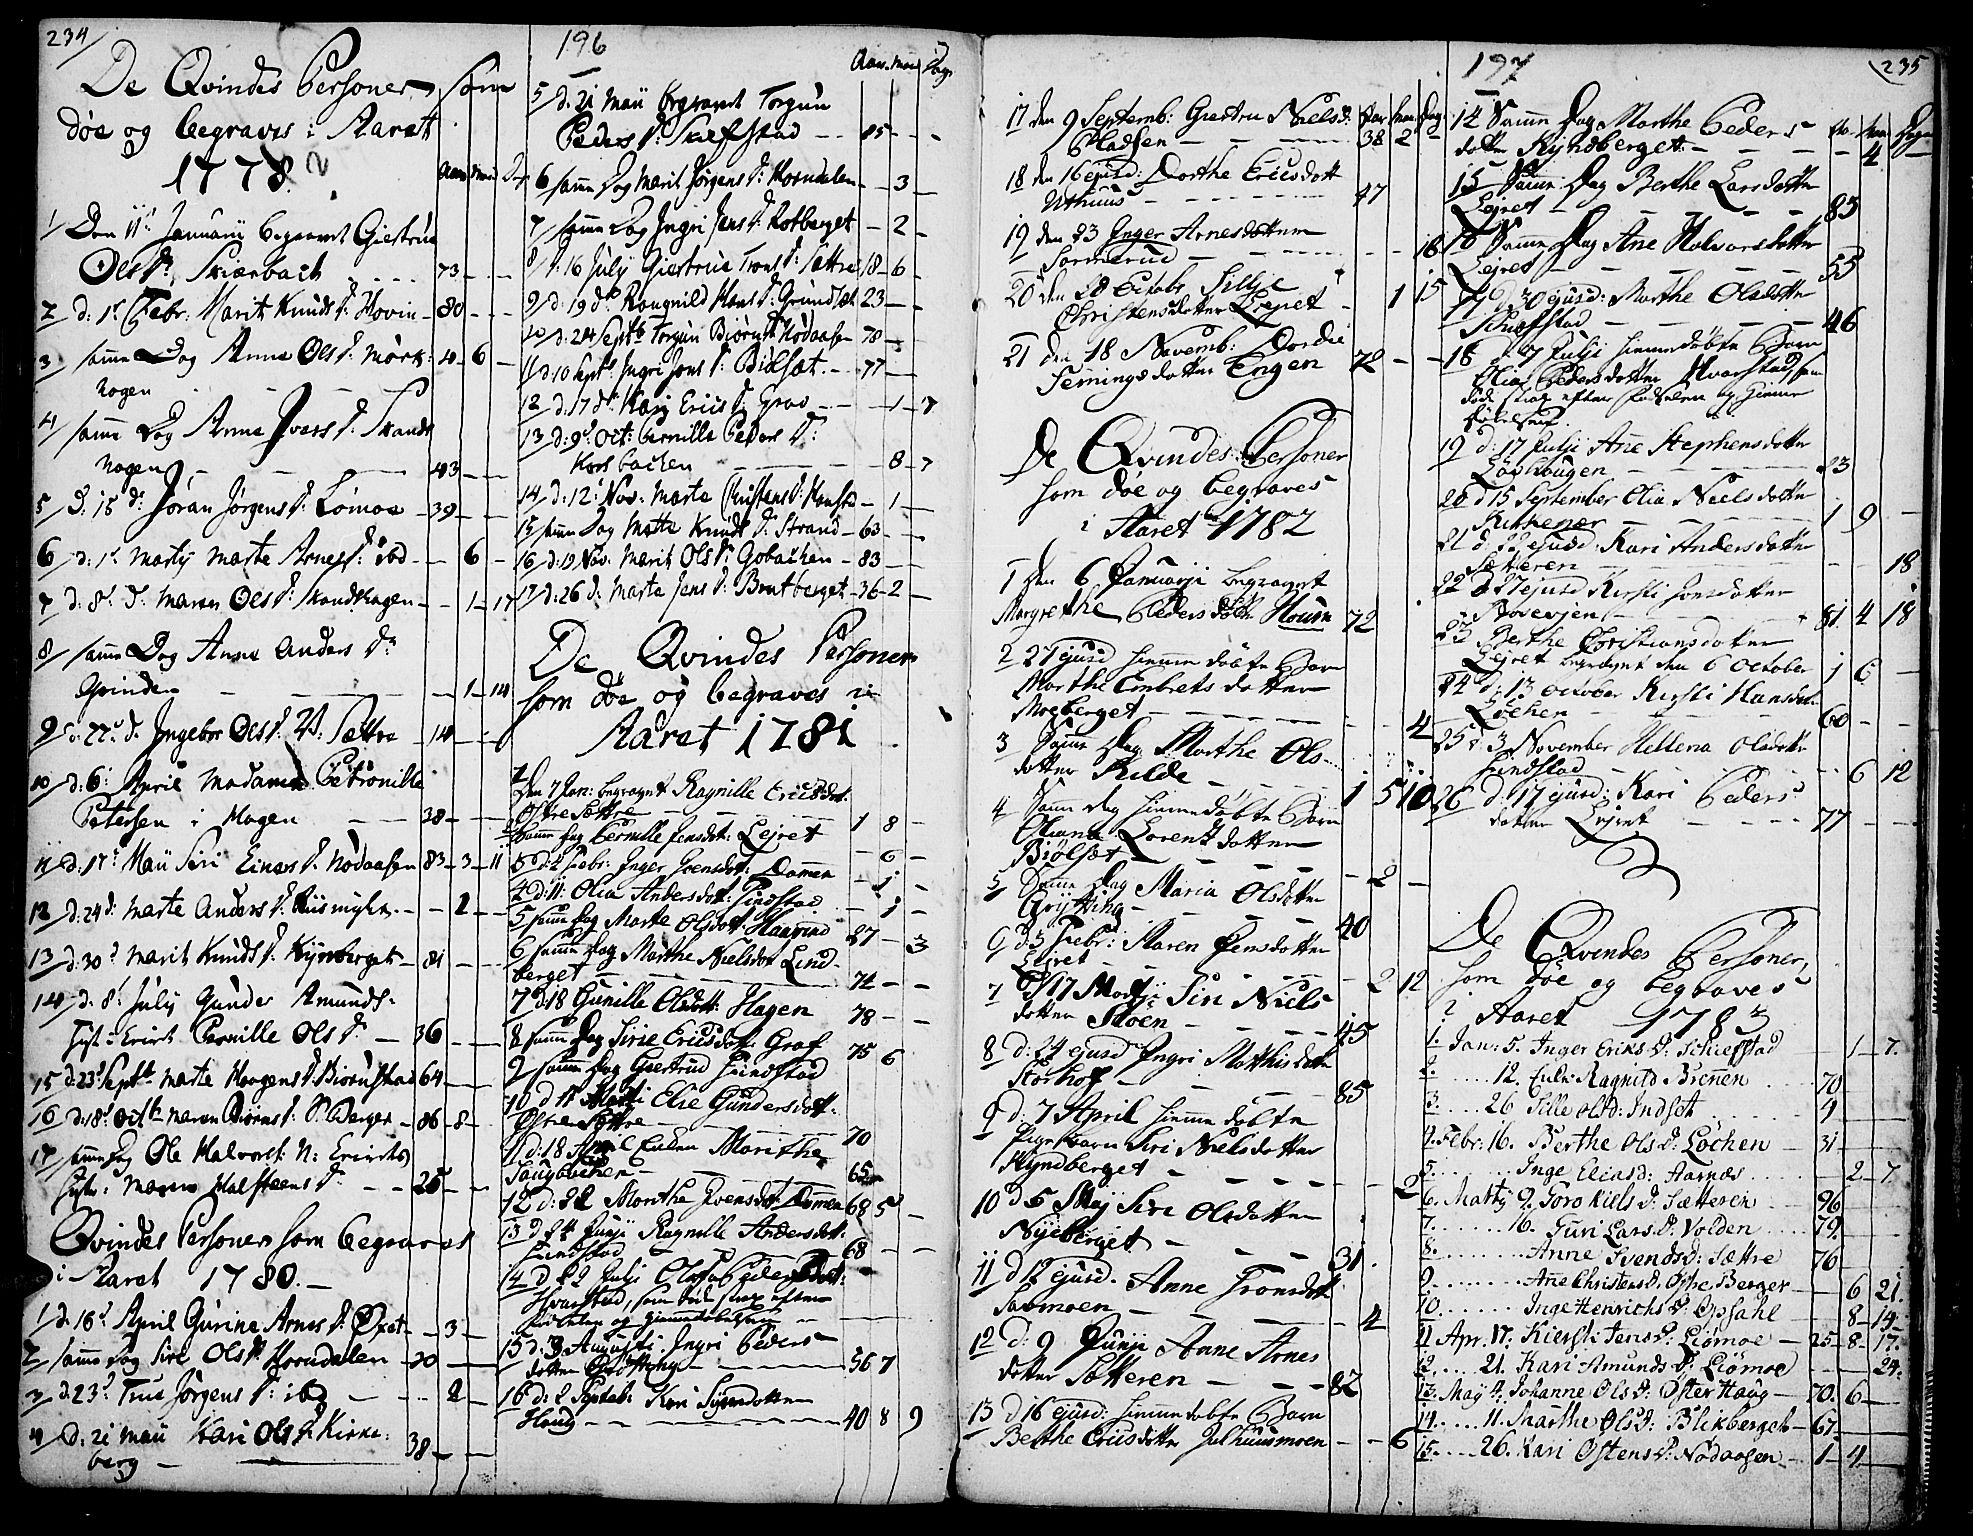 234
De Qvindes Personer som
döe og begraves i Aaret
1778.
1 Den 11te Januarii begravet Giertrue
Ols D: Skiærbach 73 — —
2 d: 1te Febr: Marit Knuds D: Hovin — 80 — —
3 samme Dag Anne Ols D: Mörk:
hagen 4 — 6 —
4 samme Dag Anne Ivers D: Skands
hagen — 43 — —
5 d: 15 d: Jöran Jörgens D: Lömoe — 39 — —
6 d: 1te Martij Marte Arnes D: ibd — — 6 —
7 d: 8de d: Maren Ols D: Skandshagen — — 1 — 17
8 samme Dag Anne Anders D:
Grinden — — 1 — 14
9 d: 22de d: Ingebor Ols D: V: Sættre — 14 — —
10 d: 6te April Madame Petronille
Petersen i Hagen — 38 — —
11 d: 17de Maii Siri Einers D: Nodaasen 83 — 3 — 11
12 d: 24d: Marte Anders D: — — 2 —
13 d: 30d Marit Knuds D: Kynberget — 81 — —
14 d: 8de Julij Gunder Amunds:
Pernille Ols D: — 36 — —
15 d: 23d Septbr Marte Haagens D: Biörnstad 64 — —
16 d: 18de Octbr Maren Biörns D: Berger — 86 — 8 —
17 samme Dag Ole Halvors: N: Erichs
Hustr: Maren Halsteens D: — — 25 — —
Qvindes Personer som begraves
i Aaret 1780.—
1 d: 16d April Gurine Arnes D: Öxet — — 3 —
2 samme Dag Siri Ols D: Horndalen — 20 — —
3 d: 23d True Jörgens D: ibd — — 2 —
4 d: 21 Maii Kari Ols D: Kirke:
berg — 38 — —
196
Aar. Maan. Dag
5 d: 21 Maii begravet Torgun
Peders D: Skiefstad — 85 — —
6 samme Dag Marit Jörgens D: Horndalen — — 3 —
7 samme Dag Ingri Jens D: Rotberget — 2 —
8 d: 16 Julij Giertrue Trons D: Sættre 18 — 6 —
9 d: 19 d: Rangnild Hans D: Grundset 23 — —
10 d: 24 Septb Torgun Biörns D: Nodaasen 78 — —
11 d: 10 Septb: Ingri Jons D: Bielsæt — 77 — —
12 d: 17 d: Kari Erics D: Grav — — 1 — 7
13 d: 9de Oct: Pernille Peders D:
Korsbachen — — 8 — 7
14 d: 12te Nov: Marte Christens D: — 1 —
15 samme Dag Mette Knuds D: Strand — 63 — —
16 d: 19 Nov: Marit Ols D: Gobachen — 83 — —
17 d: 26 d: Marte Jens D: Bratberget — 36 — 2 —
De Qvindes Personer
som döe og begraves i
Aaret 1781
1 Den 7 Jan: begravet Ragnille Ericsdot:
Östre Sættre — 1 8 —
2 samme Dag Pernille Jensdot: Lejret — 6 —
3 d: 2 Febr: Inger Joensdot: Domen — 1 —
4 d: 11: Olia Andersdot: Lindstad — 1 —
5 samme Dag Marte Olsdot: 27 — 3
6 samme Dag Marthe Nielsdot Lind:
berget — 74 — —
7 d 18 Gunille Olsdott: Hagen 78 — —
8 samme Dag Sirie Ericsdot: Graf 75 6
9 samme Dag Giertrud Lundstad
10 d 1te Martij Else Gundersdott:
Östre Sættre — 70
11 d: 18 April Enken Marithe
Haugbachen — 65
12 d: 22 Marthe Ivensdot: Domen 68 5 —
13 d 24 Junij Ragnille Andersdot:
Lundstad — 68 — —
14 d 22 Julij Olia Pedersdott:
Hvarstad, som döde strax efter
Födselen og hiemmedöbelsen —
15 d: 3 Augusti Ingri Peders
dotter Grötting — 56 7
16 d: 2 Septeb: Kari Simensdotter
Haug — 40 8 9
17 den 9 Septemb: Giertru Niels D:
Pladsen — 38 2 —
18 den 16 ejusd: Dorthe Ericsdott
Uthuus — 47
19 den 23 Inger Arnesdotter
Sormerud — — 16
20 den 28 Octobr Sillie
Christensdotter Lejret — 1 15
21 den 18 Novemb: Dordie
Femmingsdotter Engen 72 — —
De Qvindes Personer
som döe og begraves
i Aaret 1782
1 den 6 Januarji begravet
Margrethe Pedersdotter Houm 72
2 27 ejusd hiemme döbte Barn
Marthe Embrets dotter
Moeberget — — 4
3 Samme Dag Marthe Ols
dotter Kilde — 1 5 10
4 Samme Dag hiemmedöbte Barn
Oliana Lorentz dotter
Biölset — 2 —
5 Samme Dag Maria Olsdotter
Grytting — 40
6 d: 3 Febr: Maren Jensdotter
Lejret — — 2 12
7 d 17 Martji Siri Niels
dotter Moen — 45
8 d: 24 ejusd Ingri Matthisdotter
Storhof — 85
9 d: 7 April hiemmedöbte
Pigebarn Siri Nielsdotter
Kyndberget — — 2
10 d 5 Maij Siri Olsdotter
Nyeberget — 31
11 d 12 ejusd. Anne Tronsdott
Sormoen — 4
12 d: 9 Junji Anne Arnes
dotter Sætteren — 82
13 d 16 ejusd: hiemmedöbte Barn
Berthe Ericsdotter Julhuusmoen — — 6
197
235
14 Samme Dag Marthe Peders
dotter Kyndberget — — 4 —
15 Samme Dag Berthe Larsdotter
Lejret — 83
16 Samme Dag Ane Halvorsdotter
Lejret — 55
17 d 30 ejusd: Marthe Olsdotter
Skiefstad — 46
18 d: 7 Julji hiemmedöbte Barn
Olia Pedersdotter Hvarstad som
döde strax efter Födselen og hiemme
döbelsen.
19 d: 17 Julji Ane Stephensdotter
Lövhaugen — 23
20 d 15 September Olia Nielsdotter
Kirkenær — 1 9 —
21 d 22 ejusd: Kari Andersdotter
Sætteren — — 18
22 d 27 ejusd Kirsti Jonsdotter
81 4 18
23 Berthe Christiansdotter
Lejret begravet den 6 October 1 6 —
24 d: 13 October Kirsti Hansdotter
Lochen — 60 — —
25 d: 3 November Hellena Olsdotter
Lindstad — 6 12
26 d: 17 ejusd: Kari Peders
dotter Lejret — 77 — —
De Qvindes Personer,
som döe og begraves
i Aaret 1783
1. Jan: 5. Inger Eriks D: Schiefstad — 1 — 7.
2. 12. Enke: Ragnild Brenen 70
3. 26 Sille Ols D: Indset 4
4. Febr: 16. Berthe Ols D: Löchen — 31
5. Inge Elias D: Aarnæs — 2 — 7
6. Martij 9. Toro Niels D: Sætteren 96
7. 16. Turi Lars D: Volden 79.
8. Anne Svends D: Sættre 76
9. Ane Christens D: Berger — 6 21.
10. Inge Henrichs D: Opsahl — 8 — 14.
11. Apr. 17. Kiersti Jens D: Liömoe — 25 — 8 — 17.
12. 21. Kari Amunds D: Liömoe — 24.
13. Maij 4. Johanne Ols D: Öster Haug — 70. 6 —
14. 11. Marthe Ols D: Blikberget — 67.
15. 26. Kari Östens D: Nodaasen — 1 — 4